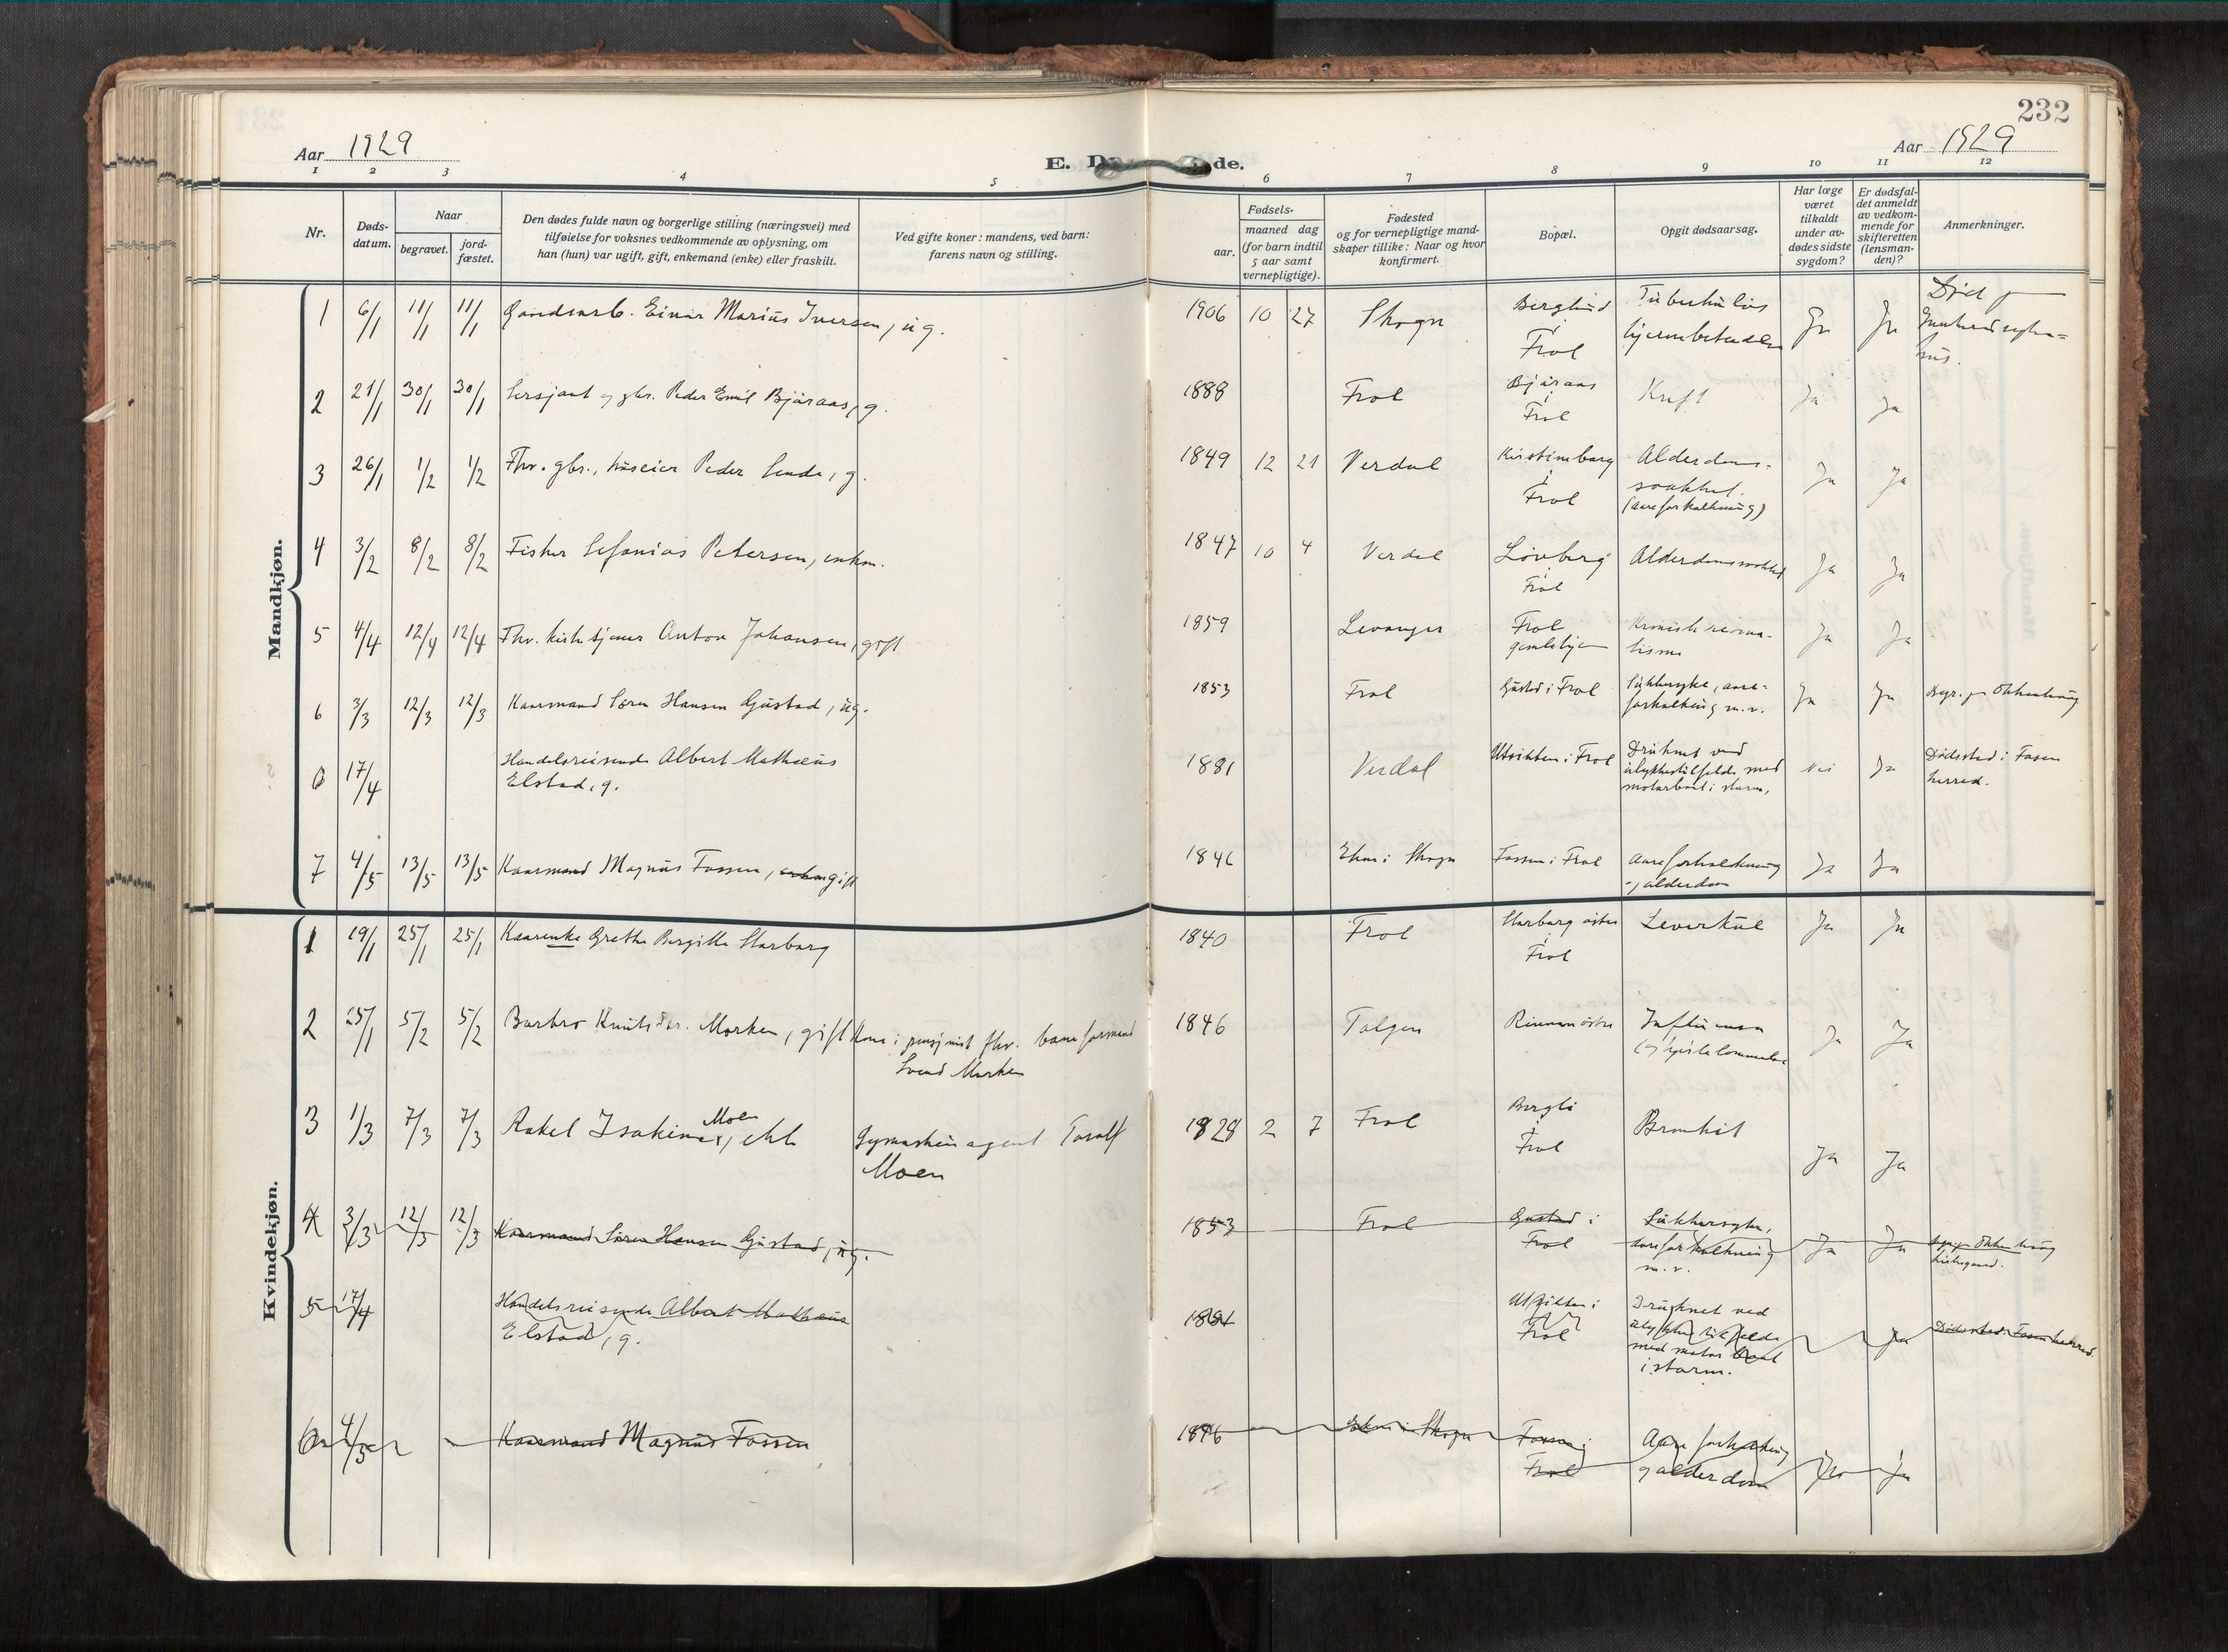 232
Aar 1929
E. D de.
Aar 1929
1 2 3 4 5 6 7 8 9 10 11 12
Nr.
Døds-
datum.
Naar
begravet.
jord-
fæstet.
Den dødes fulde navn og borgerlige stilling (næringsvei) med
tilføielse for voksnes vedkommende av oplysning, om
han (hun) var ugift, gift, enkemand (enke) eller fraskilt.
Ved gifte koner: mandens, ved barn:
farens navn og stilling.
Fødsels-
aar.
maaned dag
(for barn indtil
5 aar samt
vernepligtige).
Fødested
og for vernepligtige mand-
skaper tillike: Naar og hvor
konfirmert.
Bopæl.
Opgit dødsaarsag.
Har læge
været
tilkaldt
under av-
dødes sidste
sygdom?
Er dødsfal-
det anmeldt
av vedkom-
mende for
skifteretten
(lensman-
den)?
Anmerkninger.
Mandkjøn.
1 6/1 11/1 11/1 Einar Marius Iversen, ug. 1906 10 27 Skogn Berglund i Frol Tuberkuløs Ja Ja Død
2 21/1 30/1 30/1 Sersjant og gbr. Peder Emil Bjåraas, g. 1888 Frol Bjåraas i Frol Kreft Ja Ja
3 26/1 1/2 1/2 Fhv. gbr., huseier Peder Sende, g. 1849 12 21 Verdal Kristineborg i Frol Alderdoms-
svakhet.
(aareforkalkning) Ja Ja
4 3/2 8/2 8/2 Fisker Sefanias Petersen, enkm. 1847 10 4 Verdal Løvberg i Frol Alderdomssvakhet Ja Ja
5 4/4 12/4 12/4 Fhv. kirketjener Anton Johansen, gift 1859 Levanger Frol
gamlehjem Kronisk reuma-
tisme Ja Ja
6 3/3 12/3 12/3 Kaarmand Søren Hansen Gjustad, ug. 1853 Frol Gjustad i Frol Sukkersyke, aare-
forkalkning m.v. Ja Ja
0 17/4 Handelsreisende Albert Matheus
Elstad, g. 1881 Verdal Utsikten i Frol Druknet ved
ulykkestilfelde med
motorbaat i storm, Nei Ja Dødssted i Fosen
herred.
7 4/5 13/5 13/5 Kaarmand Magnus Fossen, enkm gift 1846 Skogn Fossen i Frol Aareforkalkning
og alderdom Ja Ja
Kvindekjøn.
1 19/1 25/1 25/1 Kaarenke Grethe Bergitte Storborg 1840 Frol Storborg østre i Frol Ja Ja
2 25/1 5/2 5/2 Barbro Knutsdtr. Morken, gift Kone i pensjonist fhv. baneformand
Svend Morken 1846 Tolgen Rinnan østre Influensa Ja Ja
3 1/3 7/3 7/3 Rakel Isakina Moen, ekte Symaskinagent Toralf
Moen 1928 2 7 Frol Bergli i Frol Bronkit Ja Ja
4 3/3 12/3 12/3 Kaarmand Søren Hansen Gjustad, ug. 1853 Frol Gustad i
Frol Sukkersyke,
aareforkalkning
m.v. Ja Ja
5 17/4 Handelsreisende Albert Matheus
Elstad, g. 1881 Utsikten i
Frol Druknet ved
ulykkestilfelde
med motorbaat
i storm. Ja Dødssted i Fosen herred.
6 4/5 Kaarmand Magnus Fossen 1846 Skogn Fossen i
Frol Aareforkalkning
og alderdom Ja Ja